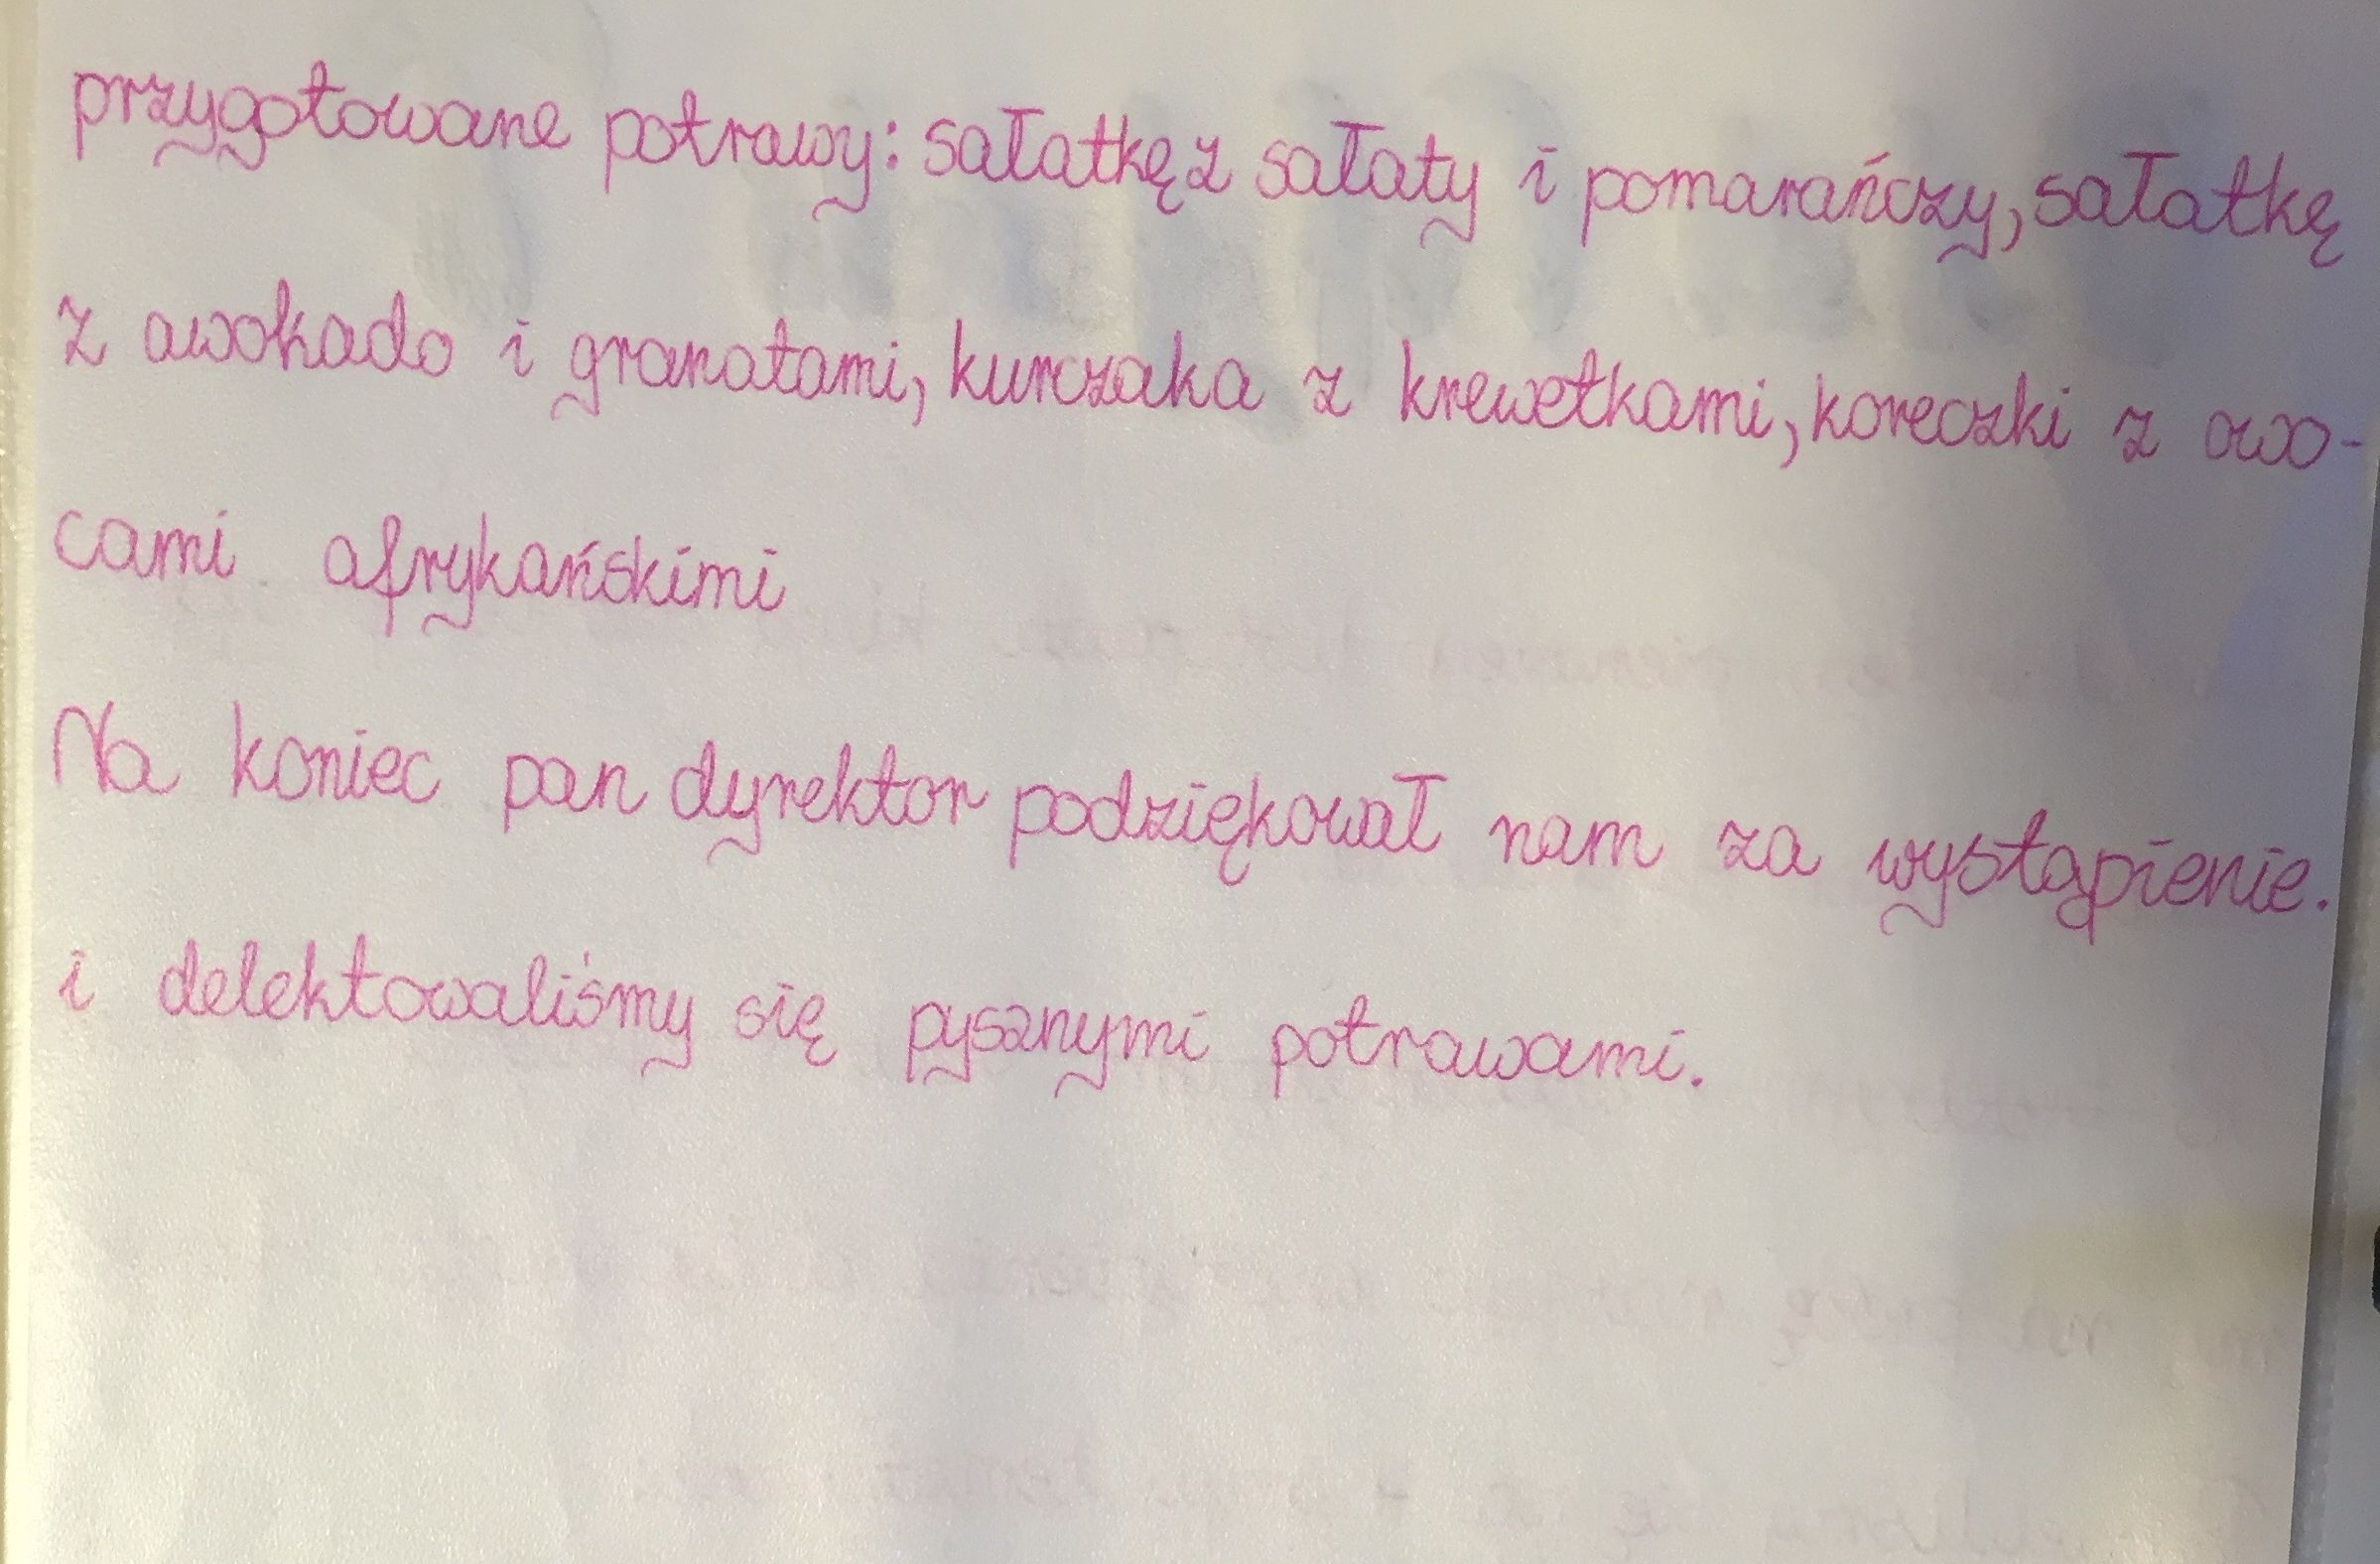 przygotowane potrawy: sałatkę z sałaty i pomarańczy, sałatkę
z awokado i granatami, kurczaka z krewetkami, koreczki z owo-
cami afrykańskimi
Na koniec pan dyrektor podziękował nam za wystąpienie.
i delektowaliśmy się pysznymi potrawami.